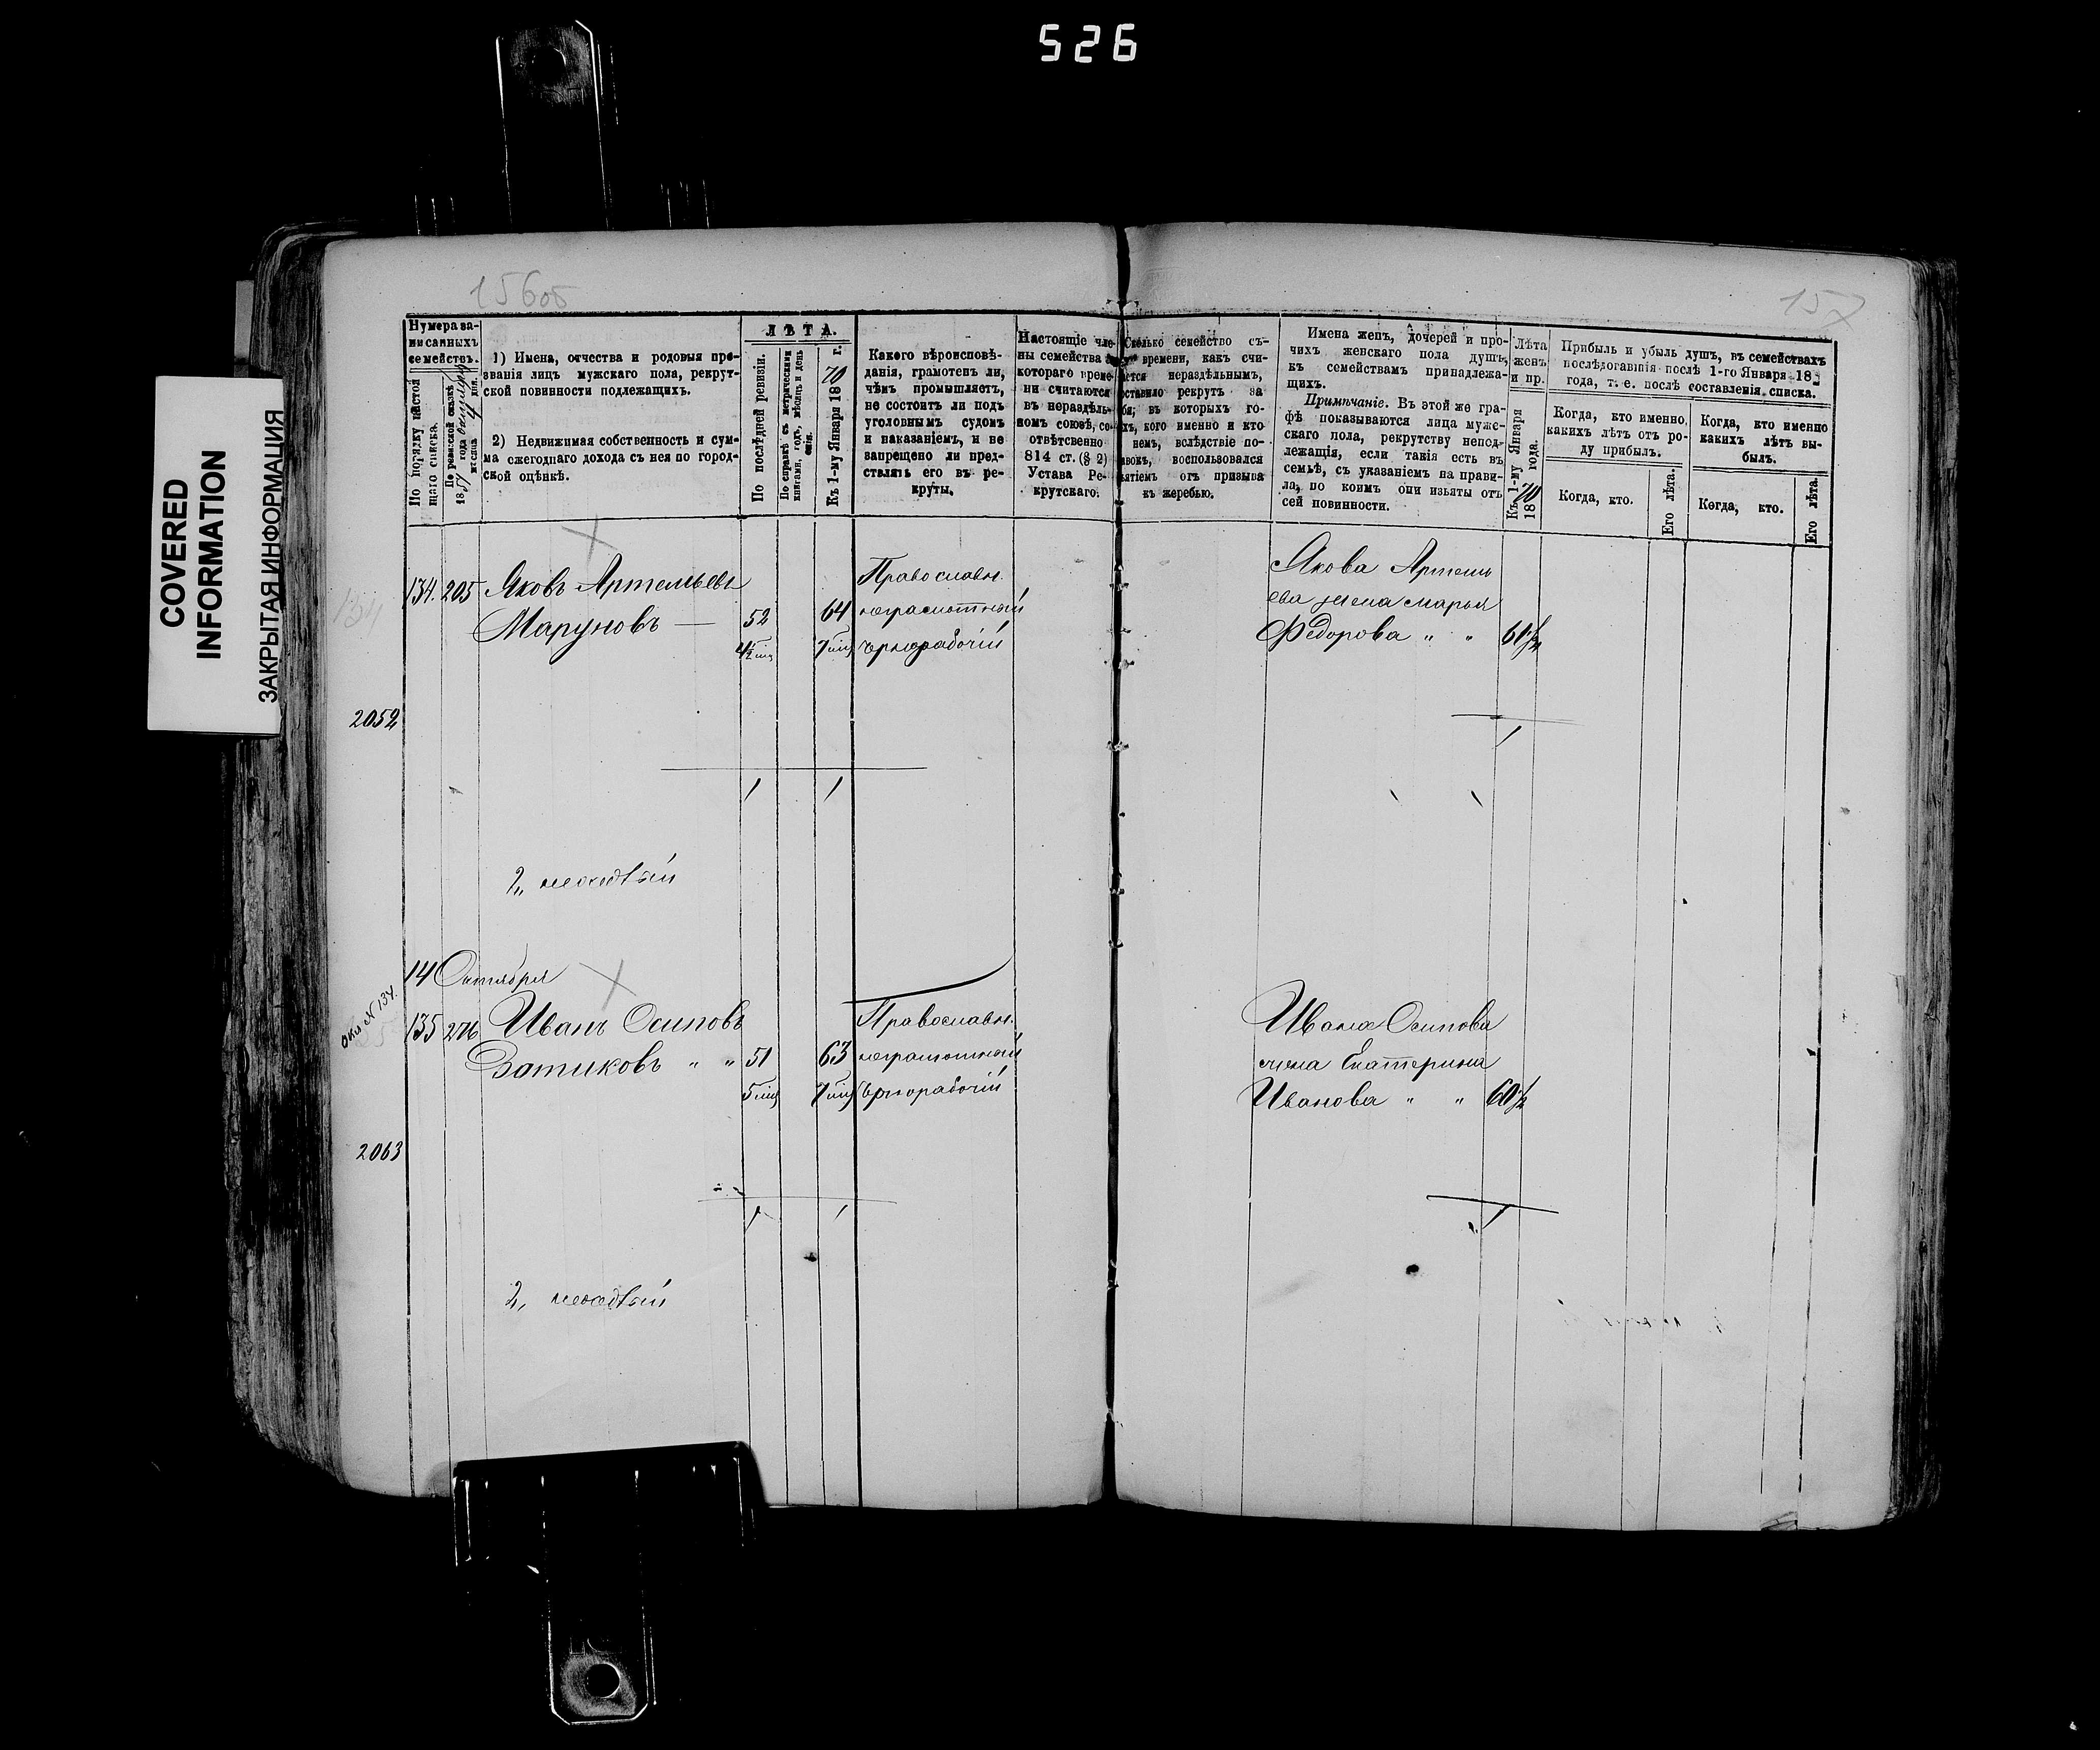 526
COVERED
INFORMATION
ЗАКРЫТАЯ ИНФОРМАЦИЯ
156об
157
Нумера за-
писанныхъ
семействъ.
По порядку настоя
щаго списка.
По ревизской сказкѣ
1857 года
мѣсяца дня.
1) Имена, отчества и родовыя про-
званія лицъ мужскаго пола, рекрут-
ской повинности подлежащихъ.
2) Недвижимая собственность и сум-
ма ежегоднаго дохода съ нея по город-
ской оцѣнкѣ.
ЛѢТА.
По послѣдней ревизіи.
По справкѣ съ метрическими
книгами, годъ, мѣсяцъ и день
Къ 1-му Января 1870 г.
Какого вѣроисповѣ-
данія, грамотенъ ли,
чѣмъ промышляетъ,
не состоитъ ли подъ
уголовнымъ судомъ
и наказаніемъ, и не
запрещено ли пред-
ставлять его въ ре-
круты.
Настоящіе чле-
ны семейства
котораго време-
ни считаются
въ нераздѣль-
номъ союзѣ, со-
отвѣтсвенно
814 ст. (§ 2)
Устава Ре-
крутскаго.
Сколько семейство съ-
времени, какъ счи-
тается нераздѣльнымъ,
оставило рекрутъ за
бя; въ которыхъ го-
хъ, кого именно и кто
немъ, вслѣдствіе по-
авокъ, воспользовался
ъятіемъ отъ призыва
къ жеребью.
Имена женъ, дочерей и про-
чихъ женскаго пола душъ,
къ семействамъ принадлежа-
щихъ.
Примѣчаніе. Въ этой же гра-
фѣ показываются лица муж-
скаго пола, рекрутству непод-
лежащія, если такія есть въ
семьѣ, съ указаніемъ на прави-
ла, по коимъ они изъяты отъ
сей повинности.
Лѣта
женъ
и пр.
Къ 1-му Января
1870 года.
Прибыль и убыль душъ, въ семействахъ
послѣдогавшія послѣ 1-го Января 18
года, т. е. послѣ составленія списка.
Когда, кто именно,
какихъ лѣтъ отъ ро-
ду прибылъ.
Когда, кто именно
какихъ лѣтъ вы-
былъ.
Когда, кто.
Его лѣта.
Когда, кто.
Его лѣта.
134
134. 205 Яковъ Артемьевъ Православн.
Маруновъ — 52 64 неграмотный
чернорабочій
Якова Артемь
ева жена Марья
Федорова " " 60½
2052
1 1
1
2,
14 Октября
135 206 Иванъ Осиповъ Православн.
Затиковъ " " 51 63 неграмотный
чернорабочій
Ивана Осипова
жена Екатерина
Иванова " " 60½
2063
1 1
1
2,